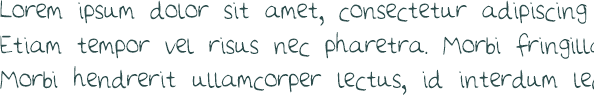 Lorem ipsum dolor sit amet, consectetur adipiscing
Etiam tempor vel risus nec pharetra. Morbi fringill
Morbi hendrerit ullamcorper lectus, id interdum le